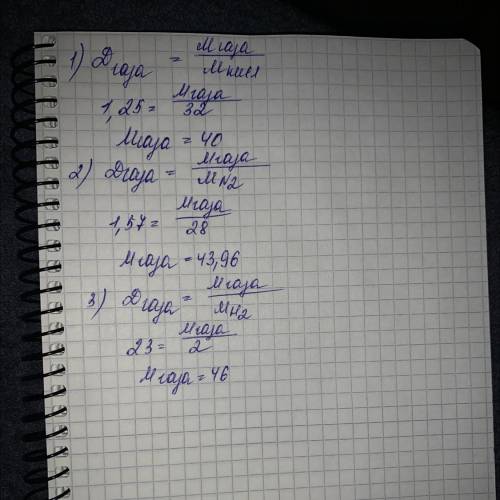 1) Dгаза = Mгаза / Mкисл
1,25 = Mгаза / 32
Mгаза = 40
2) Dгаза = Mгаза / MN2
1,57 = Mгаза / 28
Mгаза = 43,96
3) Dгаза = Mгаза / MH2
23 = Mгаза / 2
Mгаза = 46